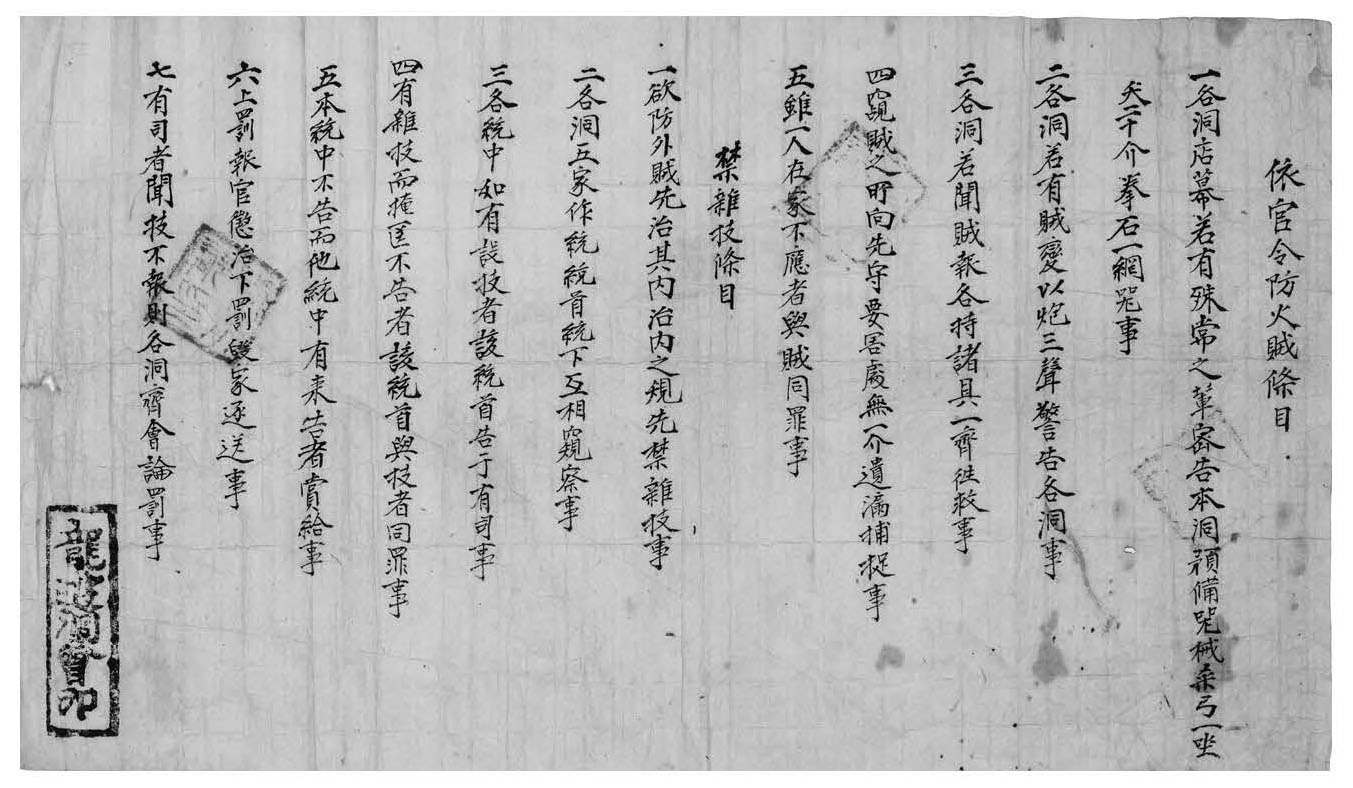 依官令防火賊條目
一各洞店幕若有殊常之輩密告本洞預備器械桑弓一坐
矢二十介拳石一網器事
二各洞若有賊變以炮三聲警告各洞事
三各洞若聞賊報各持諸具一齊徃救事
四窺賊之所向先守要害處無一介遺漏捕捉事
五雖一人在家不應者與賊同罪事
禁雜技條目
一欲防外賊先治其內治內之規先禁雜技事
二各洞五家作統統首統下互相窺察事
三各統中如有設技者該統首告于有司事
四有雜技而掩匿不告者該統首與技者同罪事
五本統中不告而他統中有来告者賞給事
六上罰報官懲治下罰毀家逐送事
七有司者聞技不報則各洞齊會論罰事
洞會印